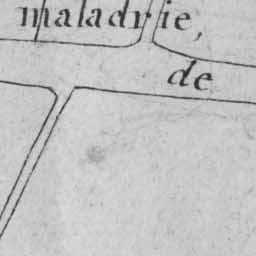 maladrie,
de